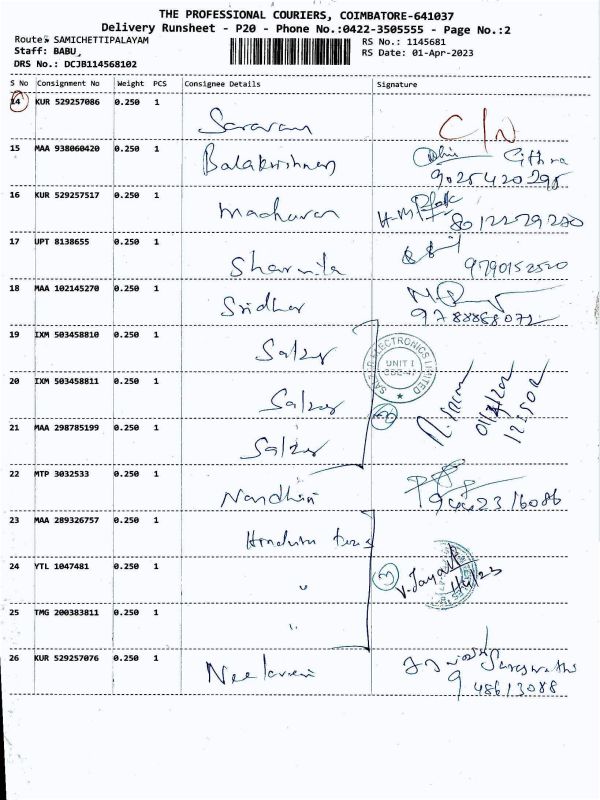 THE PROFESSIONAL COURIERS, COIMBATORE-641037
Delivery Runsheet - P20 - Phone No.:0422-3505555 - Page No.:2
Route: SAMICHETTIPALAYAM
RS No.: 1145681
Staff: BABU,
RS Date: 01-Apr-2023
DRS No.: DCJB114568102
S No Consignment No Weight PCS Consignee Details Signature
14 KUR 529257086 0.250 1 Saravan C/N
15 MAA 938060420 0.250 1 Balakrishnan Cithra
9025420295
16 KUR 529257517 0.250 1 Madhavan
8012279280
17 UPT 8138655 0.250 1 Sharmila
9790152520
18 MAA 102145270 0.250 1 Sridhar
9788868072
19 IXM 503458810 0.250 1 Salzer
ELECTRONICS LIMITED
UNIT I
20 IXM 503458811 0.250 1 Salzer
21 MAA 298785199 0.250 1 Salzer
22 MTP 3032533 0.250 1 Nandhini
9442316086
23 MAA 289326757 0.250 1
24 YTL 1047481 0.250 1 "
25 TMG 200383811 0.250 1 "
26 KUR 529257076 0.250 1
948613088